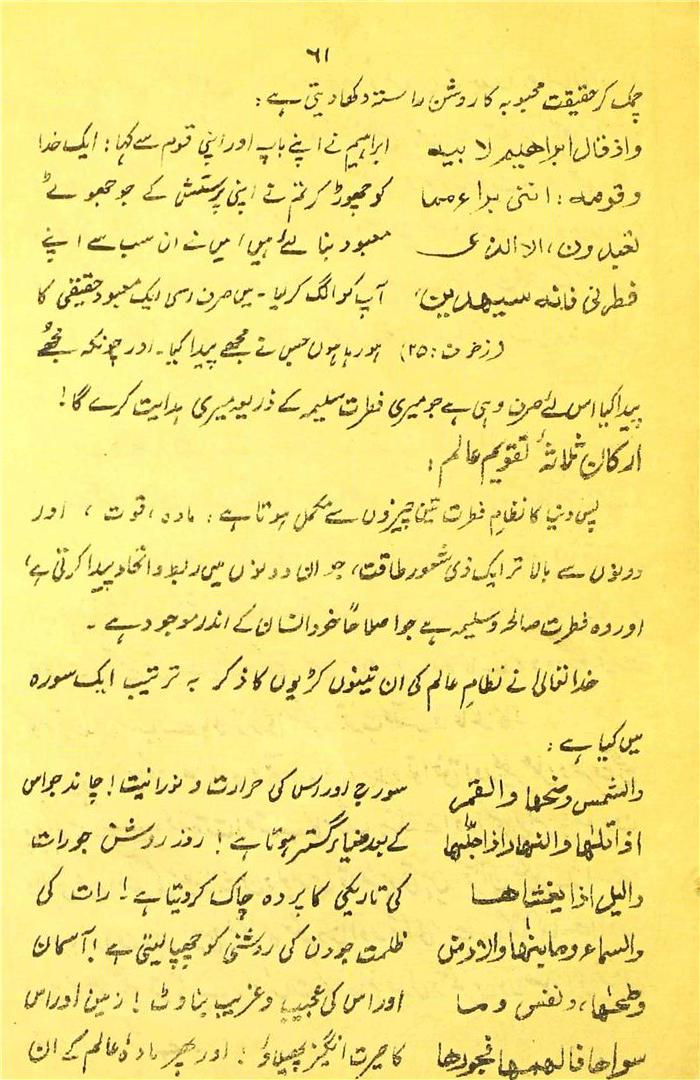 ۶۱
چمک کر حقیقت محبوبہ کا روشن راستہ دکھا دیتی ہے:
واذ قال ابراھیم لا بیہ ابراہیم نے اپنے باپ اور اپنی قوم سے کہا: ایک خدا
وقومہ: اننی براء مما کو چھوڑ کر تم نے اپنی پرستش کے جو جھوٹے
تعبدون، الا الذی معبود بنا لئے ہیں، میں نے ان سب سے اپنے
فطرنی فانہ سیھدین، آپ کو الگ کر لیا۔ میں صرف اسی ایک معبود حقیقی کا
(زخرف: ۲۵) ہو رہا ہوں جس نے مجھے پیدا کیا۔ اور چونکہ مجھے
پیدا کیا اس لئے صرف وہی ہے جو میری فطرت سلیمہ کے ذریعہ میری ہدایت کرے گا!
ارکان ثلاثۂ تقویم عالم:
پس دنیا کا نظام فطرت تین چیزوں سے مکمل ہوتا ہے: مادہ، قوت، اور
دونوں سے بالا تر ایک ذی شعور طاقت، جو ان دونوں میں ربط و اتحاد پیدا کرتی ہے،
اور وہ فطرت صالحہ و سلیمہ ہے جو اصلاحًا خود انسان کے اندر موجود ہے۔
خدا تعالیٰ نے نظام عالم کی ان تینوں کڑیوں کا ذکر بہ ترتیب ایک سورہ
میں کیا ہے:
والشمس وضحٰھا والقمر سورج اور اس کی حرارت و نورانیت! چاند جو اس
اذا تلٰھا والنھار اذا جلّٰھا کے بعد ضیا گستر ہوتا ہے! روز روشن جو رات
والیل اذا یغشاھا کی تاریکی کا پردہ چاک کر دیتا ہے! رات کی
والسماء وما بنٰھا والارض ظلمت جو دن کی روشنی کو چھپا لیتی ہے! آسمان
وطحٰھا، ونفس وما اور اس کی عجیب و غریب بناوٹ! زمین اور اس
سواھا فالھمھا فجورھا کا حیرت انگیز پھیلاؤ! اور پھر مادۂ عالم کے ان